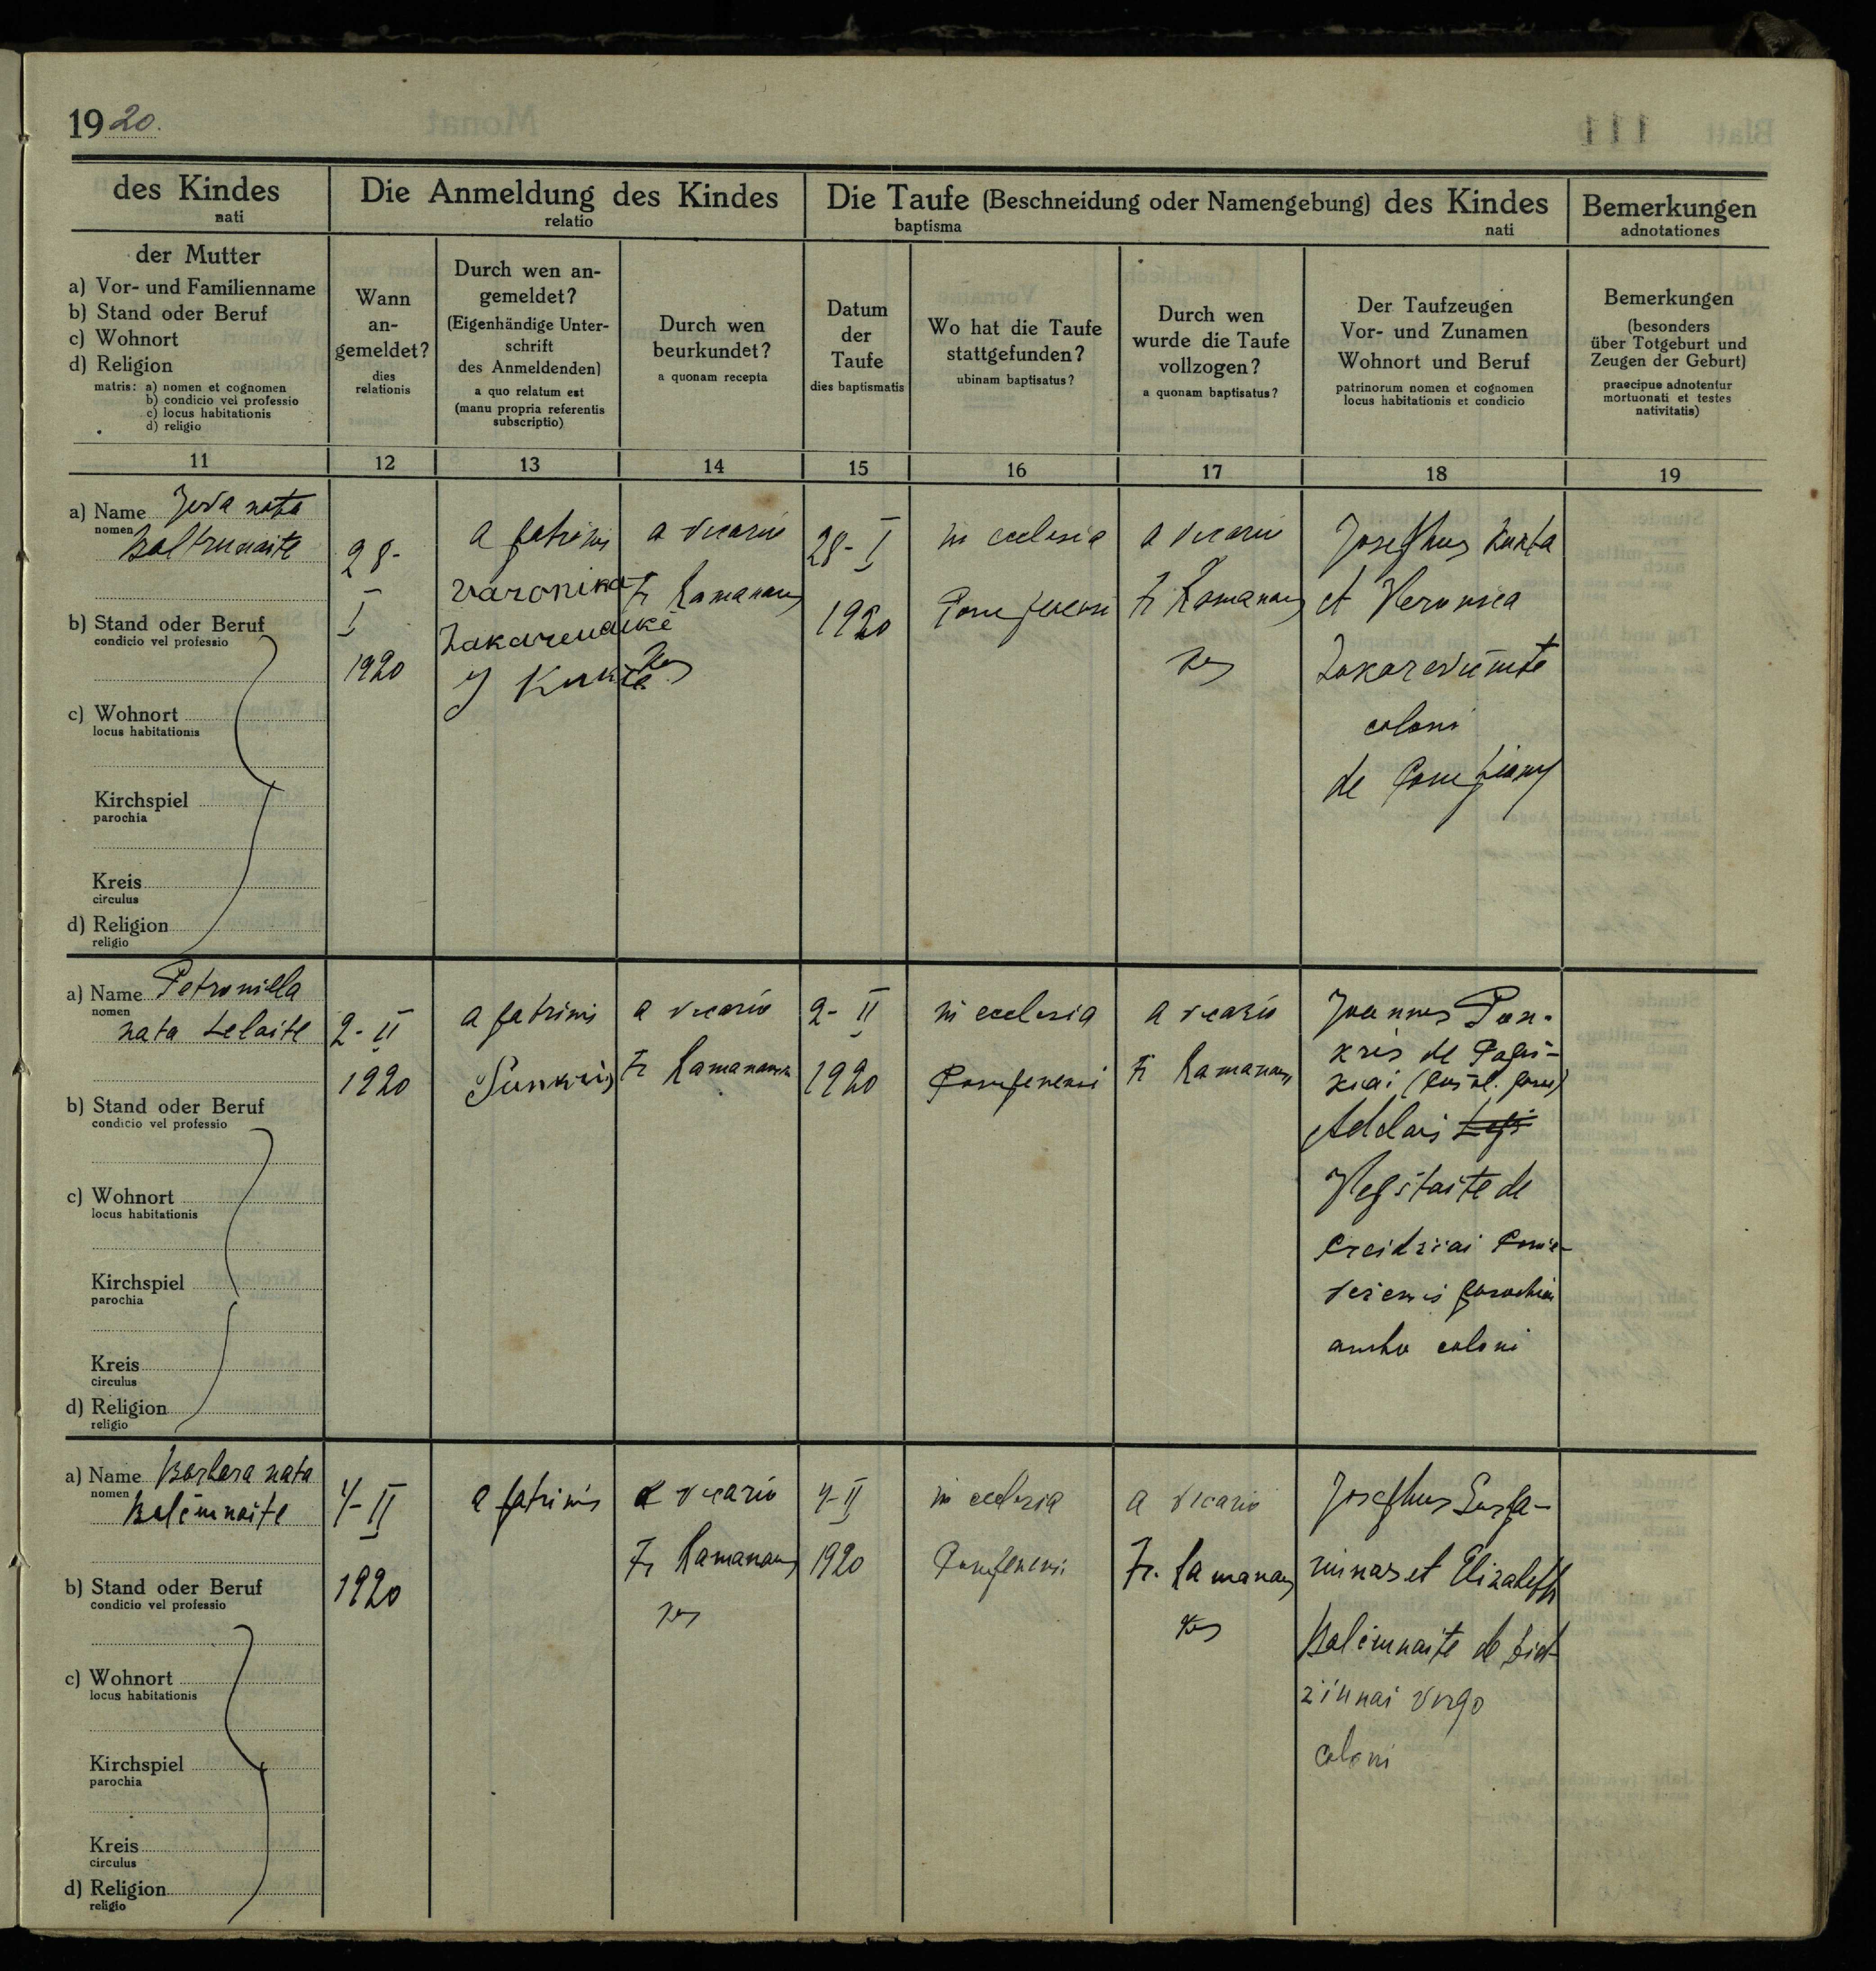 1920.
des Kindes
nati
Die Anmeldung des Kindes
relatio
Die Taufe (Beschneidung oder Namengebung) des Kindes
baptisma
nati
Bemerkungen
adnotationes
der Mutter
a) Vor- und Familienname
b) Stand oder Beruf
c) Wohnort
d) Religion
matris: a) nomen et cognomen
b) condicio vel professio
c) locus habitationis
d) religio
Wann
an-
gemeldet?
dies
relationis
Durch wen an-
gemeldet?
(Eigenhändige Unter-
schrift
des Anmeldenden)
a quo relatum est
(manu propria referentis
subscriptio)
Durch wen
beurkundet?
a quonam recepta
Datum
der
Taufe
dies baptismatis
Wo hat die Taufe
stattgefunden?
ubinam baptisatus?
Durch wen
wurde die Taufe
vollzogen?
a quonam baptisatus?
Der Taufzeugen
Vor- und Zunamen
Wohnort und Beruf
patrinorum nomen et cognomen
locus habitationis et condicio
Bemerkungen
(besonders
über Totgeburt und
Zeugen der Geburt)
praecipue adnotentur
mortuonati et testes
nativitatis)
11 12 13 14 15 16 17 18 19
a) Name Jeva nata
nomen
Baltrunaite
b) Stand oder Beruf
condicio vel professio
c) Wohnort
locus habitationis
Kirchspiel
parochia
Kreis
circulus
d) Religion
religio
28-
I
1920
a patrinis
Varonika
a vicario
Fr Ramanau
28-I
1920
in ecclesia
a vicario
Fr Ramanau
Josephus
et Veronica
coloni
de
a) Name Petronilla
nomen
nata Lelaite
b) Stand oder Beruf
condicio vel professio
c) Wohnort
locus habitationis
Kirchspiel
parochia
Kreis
circulus
d) Religion
religio
2-II
1920
a patrinis
a vicario
Fr Ramanau
2-II
1920
in ecclesia
a vicario
Fr Ramanau
Joannes Pun-
kris de
ambo coloni
a) Name Barbara nata
nomen
Balčiunaite
b) Stand oder Beruf
condicio vel professio
c) Wohnort
locus habitationis
Kirchspiel
parochia
Kreis
circulus
d) Religion
religio
4-II
1920
a patrinis
a vicario
Fr Ramanau
4-II
1920
in ecclesia
a vicario
Fr. Ramanau
Josephus
et Elizabeth
Balčiunaite de
virgo
coloni